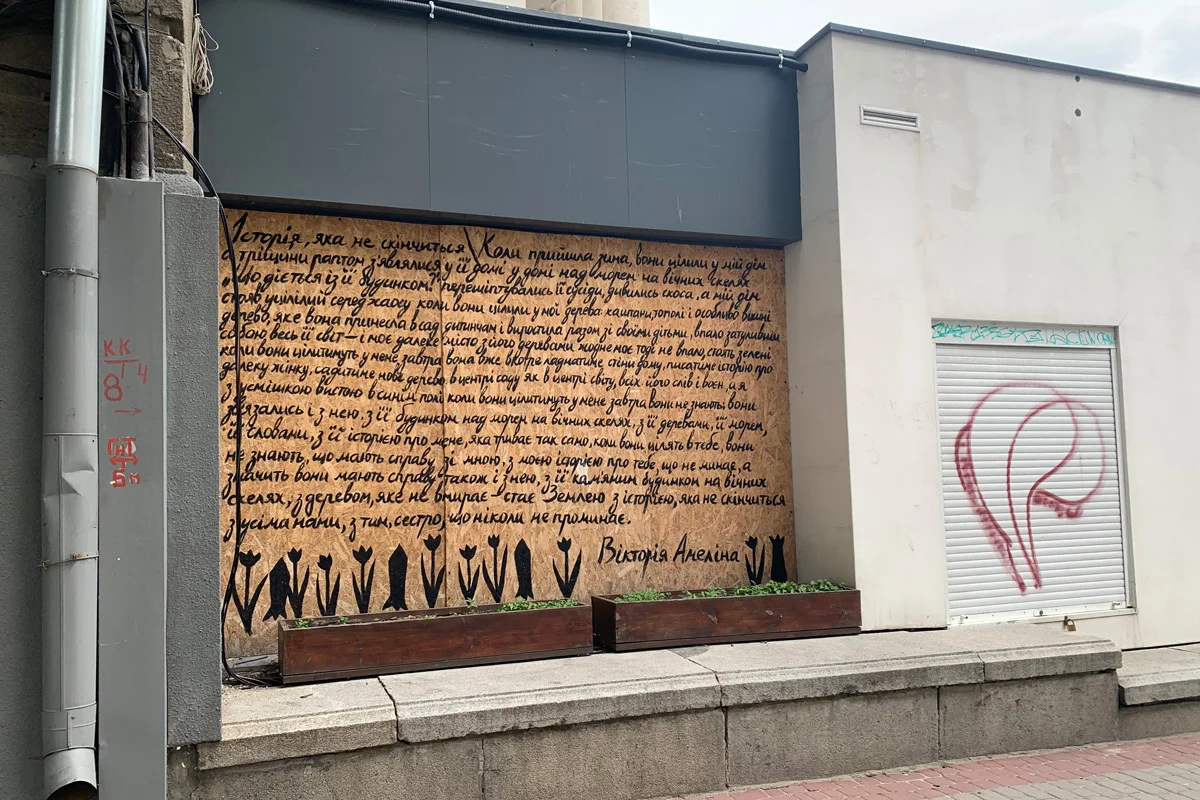 Історія, яка не скінчиться \ Коли прийшла зима, вони цілили у мій дім
а тріщини раптом з'являлися у її домі у домі над морем на вічних скелях
"що діється із її будинком?" перешіптувались її сусіди, дивились скоса, а мій дім
стояв уцілілий серед хаосу коли вони цілили у мої дерева: каштани, тополі і особливо вишні
дерево, яке вона принесла в сад дитинчам і виростила разом зі своїми дітьми, впало затуливши
собою весь її світ — і моє далеке місто з його деревами жодне моє тоді не впало, стоять зелені
коли вони цілитимуть у мене завтра вона вже вкотре ладнатиме стіни дому, писатиме історію про
далеку жінку, садитиме нове дерево в центрі саду як в центрі світу, всіх його слів і воєн, и я
з усмішкою вистою в синім полі коли вони цілитимуть у мене завтра вони не знають: вони
зв'язались і з нею, з її будинком над морем на вічних скелях, з її деревами, її морем,
її словами, з її історією про мене, яка триває так само, коли вони цілять в тебе, вони
не знають, що мають справу зі мною, з моєю історією про тебе, що не минає, а
значить вони мають справу також і з нею, з її кам'яним будинком на вічних
скелях, з деревом, яке не вмирає - стає Землею з історією, яка не скінчиться
з усіма нами, з тим, сестро, що ніколи не проминає.
Вікторія Амеліна
КК
Т 4
8